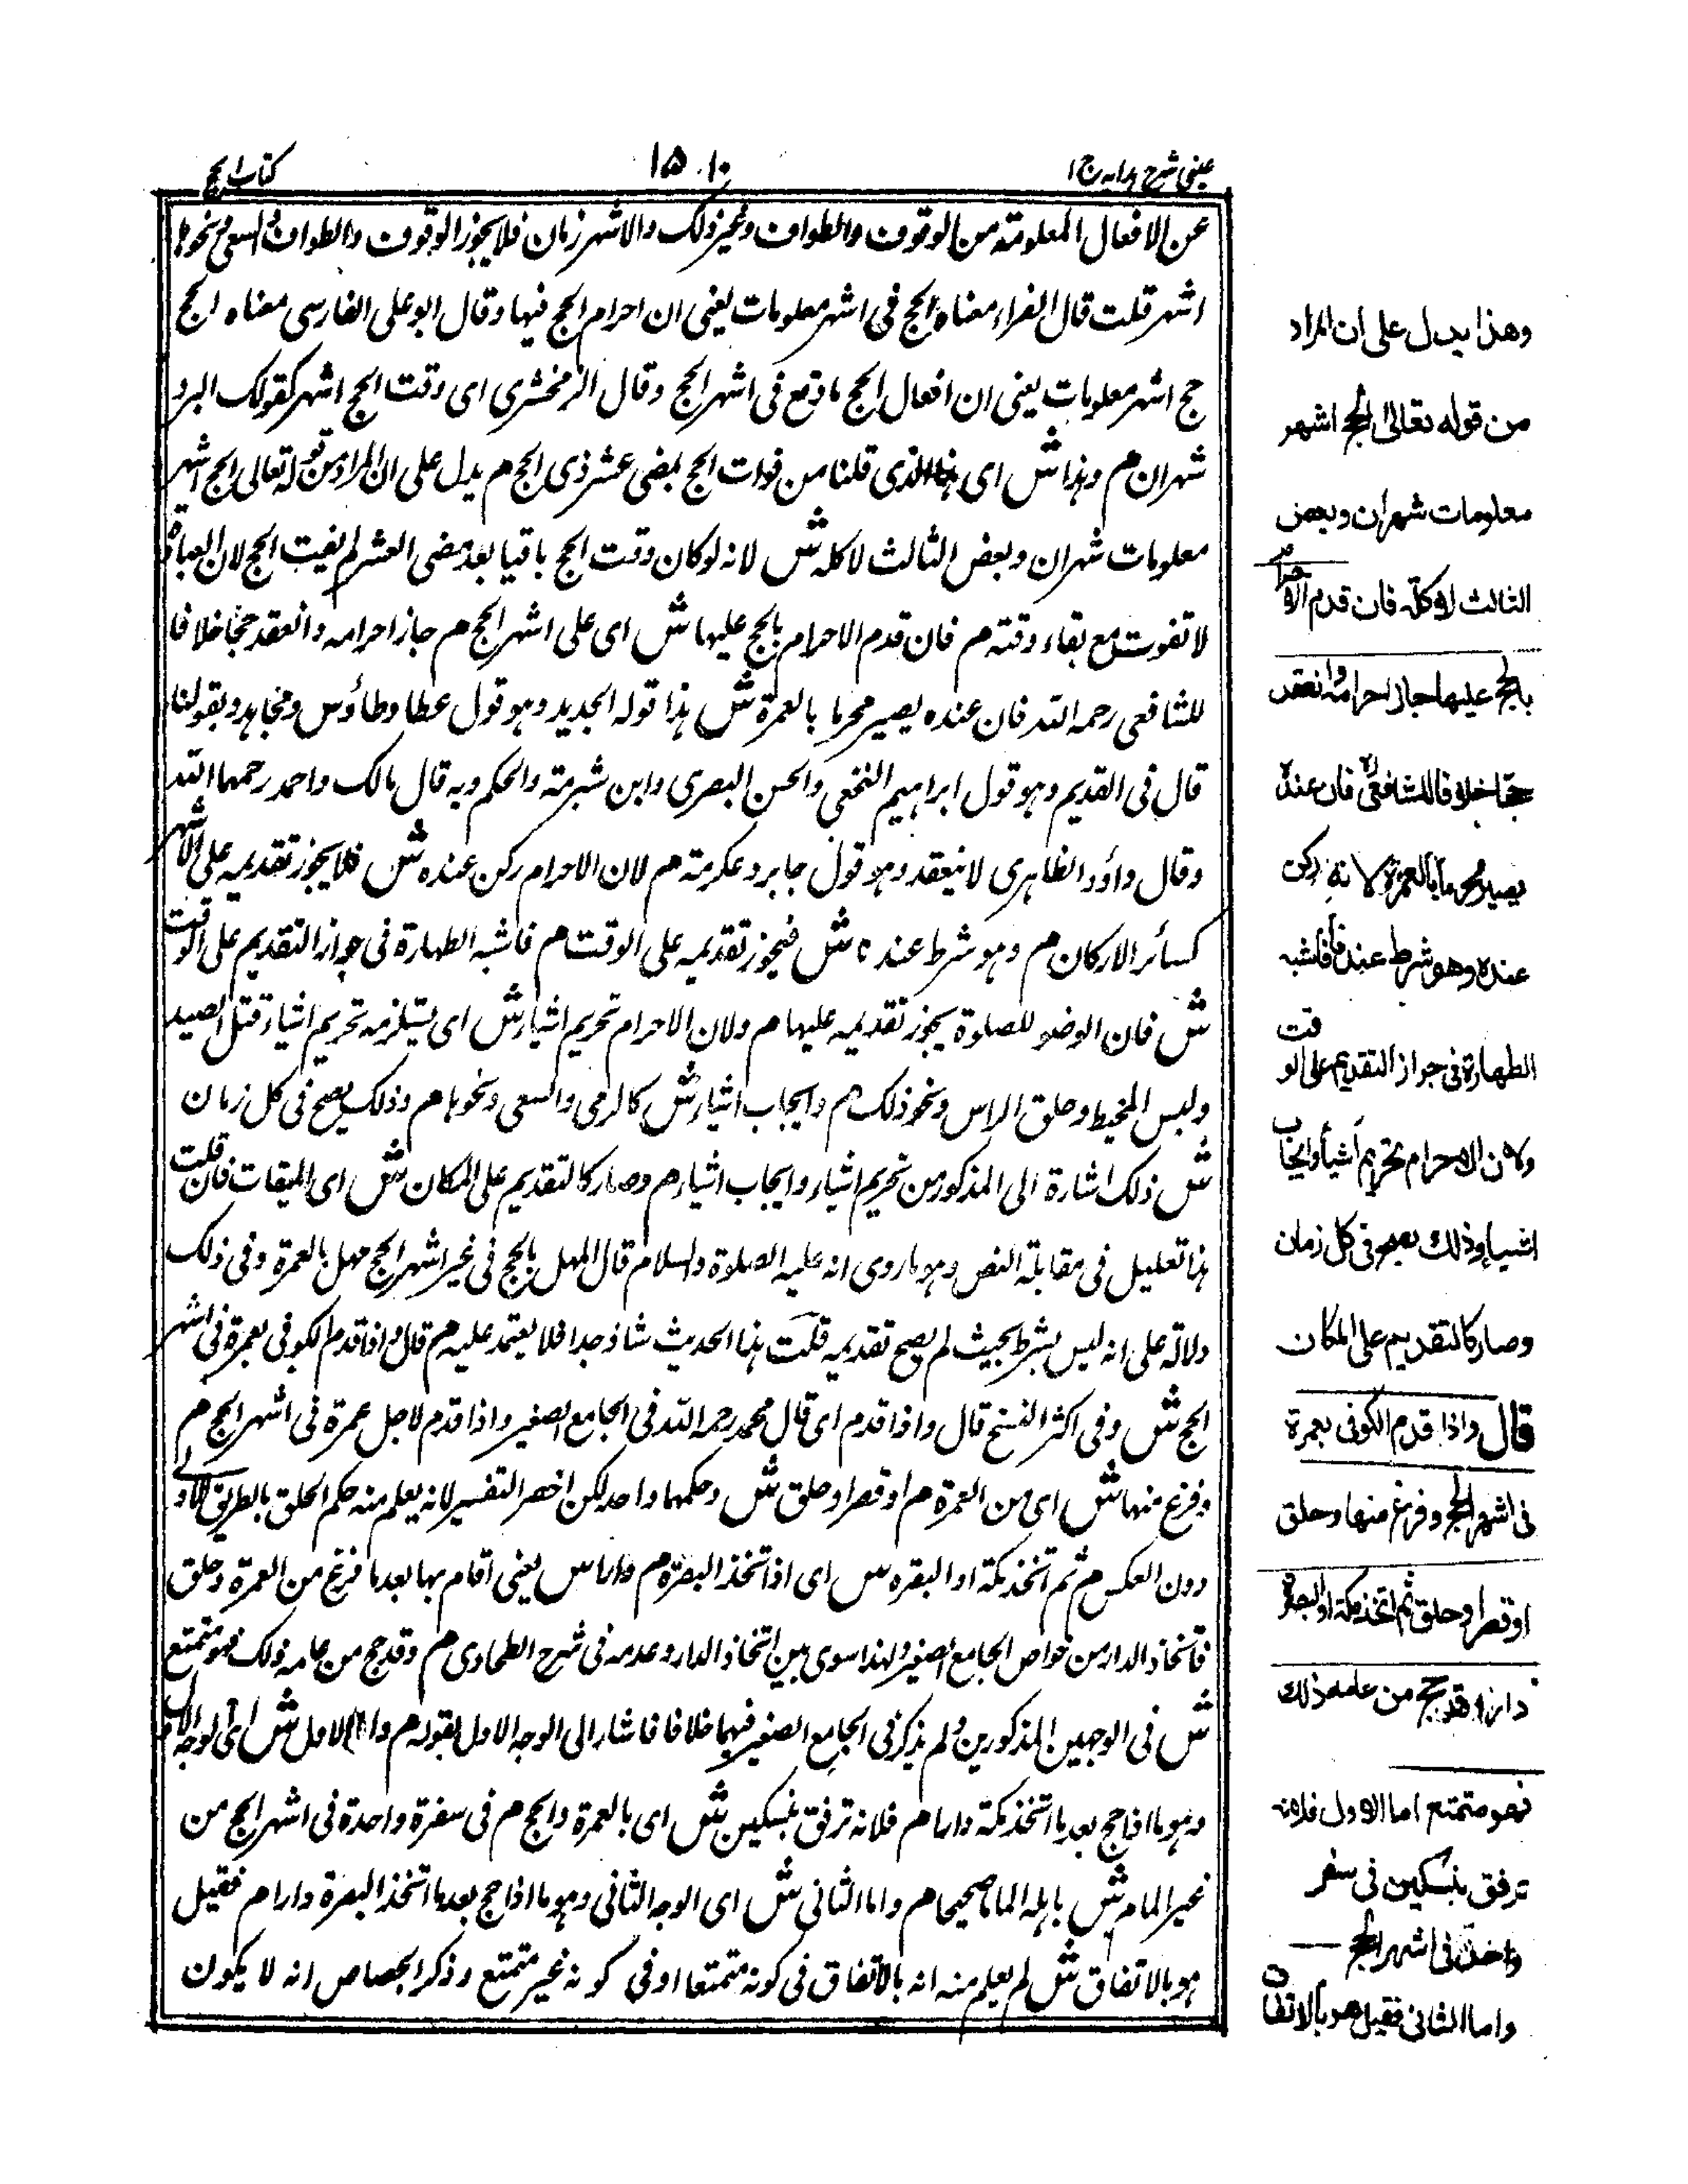 عینی شرح ہدایہ ج ۱
۱۵۱۰
کتاب الحج
عن الافعال المعلومة من الوقوف والطواف وغیر ذلک والاشہر زمان فلا یجوز الوقوف والطواف والسعی ونحوہا
اشہر قلت قال الفراء معناہ الحج فی اشہر معلومات یعنی ان احرام الحج فیہا وقال ابو علی الفارسی معناہ الحج
حج اشہر معلومات یعنی ان افعال الحج ما وقع فی اشہر الحج وقال الزمخشری ای وقت الحج اشہر کقولک البرد
شہران م وہذا ش ای ہذا الذی قلنا من فوات الحج بمضی عشر ذی الحج م یدل علی ان المراد من قولہ تعالی الحج اشہر
معلومات شہران وبعض الثالث لا کلہ ش لانہ لو کان وقت الحج باقیا بعد مضی العشر لم یفت الحج لان العبادة
لا تفوت مع بقاء وقتہ م فان قدم الاحرام بالحج علیہا ش ای علی اشہر الحج م جاز احرامہ وانعقد حجا خلافا
للشافعی رحمہ اللہ فان عندہ یصیر محرما بالعمرة ش ہذا قولہ الجدید وہو قول عطا وطاؤس ومجاہد وبقولنا
قال فی القدیم وہو قول ابراہیم النخعی والحسن البصری وابن شبرمة والحکم وبہ قال مالک واحمد رحمہما اللہ
وقال داؤد الظاہری لا ینعقد وہو قول جابر وعکرمة م لان الاحرام رکن عندہ ش فلا یجوز تقدیمہ علی الاشہر
کسائر الارکان م وہو شرط عندنا ش فیجوز تقدیمہ علی الوقت م فاشبہ الطہارة فی جواز التقدیم علی الوقت
ش فان الوضو للصلوة یجوز تقدیمہ علیہا م ولان الاحرام تحریم اشیاء ش ای یستلزمہ تحریم اشیاء قتل الصید
ولبس المخیط وحلق الراس ونحو ذلک م وایجاب اشیاء ش کالرمی والسعی ونحوہا م وذلک یصح فی کل زمان
ش ذلک اشارة الی المذکور من تحریم اشیاء وایجاب اشیاء م وصار کالتقدیم علی المکان ش ای المیقات فان قلت
ہذا تعلیل فی مقابلة النص وہو ما روی انہ علیہ الصلوة والسلام قال المہل بالحج فی غیر اشہر الحج مہل بالعمرة وفی ذلک
دلالة علی انہ لیس بشرط بحیث لم یصح تقدیمہ قلت ہذا الحدیث شاذ جدا فلا یعتمد علیہ م قال واذا قدم الکوفی بعمرة فی اشہر
الحج ش وفی اکثر النسخ قال واذا قدم ای قال محمد رحمہ اللہ فی الجامع الصغیر واذا قدم لاجل عمرة فی اشہر الحج م
وفرغ منہا ش ای من العمرة م او قصر او حلق ش وحکمہما واحد لکن اختصر التفسیر لانہ یعلم منہ حکم الحلق بالطریق الاولی
دون العکس م ثم اتخذ مکة او البصرہ ش ای اذ اتخذ البصرة م دارا ش یعنی اقام بہا بعد ما فرغ من العمرة وحلق
فاتخاذ الدار من خواص الجامع الصغیر ولہذا سوی بین اتخاذ الدار وعدمہ فی شرح الطحاوی م وقد حج من عامہ ذلک فہو متمتع
ش فی الوجہین المذکورین ولم یذکر فی الجامع الصغیر فیہما خلافا فاشار الی الوجہ الاول بقولہ م واما الاول ش ای الوجہ الاول
وہو ما اذا حج بعد ما اتخذ مکة دارا م فلانہ ترفق بنسکین ش ای بالعمرة والحج م فی سفرة واحدة فی اشہر الحج من
غیر المام ش باہلہ الماما صحیحا م واما الثانی ش ای الوجہ الثانی وہو ما اذا حج بعد ما اتخذ البصرة دارا م فقیل
ہو بالاتفاق ش لم یعلم منہ انہ بالاتفاق فی کونہ متمتعا او فی کونہ غیر متمتع وذکر الجصاص انہ لا یکون
وهذا يدل على ان المراد
من قوله تعالى الحج اشهر
معلومات شهران وبعض
الثالث لا كله فان قدم الاحرام
بالحج عليها جاز احرامه وانعقد
حجا خلافا للشافعى فان عنده
يصير محرما بالعمرة لانه ركن
عنده وهو شرط عندنا فاشبه
الطهارة فى جواز التقديم على الوقت
ولان الاحرام تحريم اشياء وايجاب
اشياء وذلك يصح فى كل زمان
وصار كالتقديم على المكان
قال واذا قدم الكوفى بعمرة
فى اشهر الحج وفرغ منها وحلق
او قصر او حلق ثم اتخذ مكة او البصرة
دارا وقد حج من عامه ذلك
فهو متمتع اما الاول فلانه
ترفق بنسكين فى سفر
واحد فى اشهر الحج
واما الثانى فقيل هو بالاتفاق